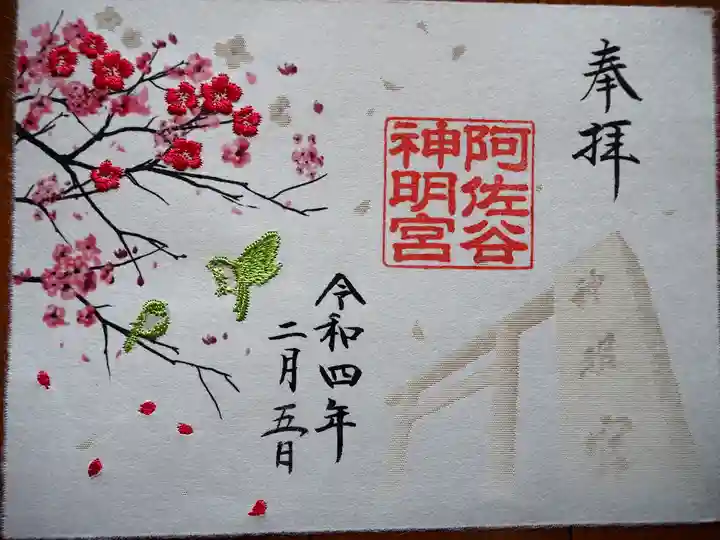 奉拝
阿佐谷
神明宮
令和四年
二月五日
神明宮